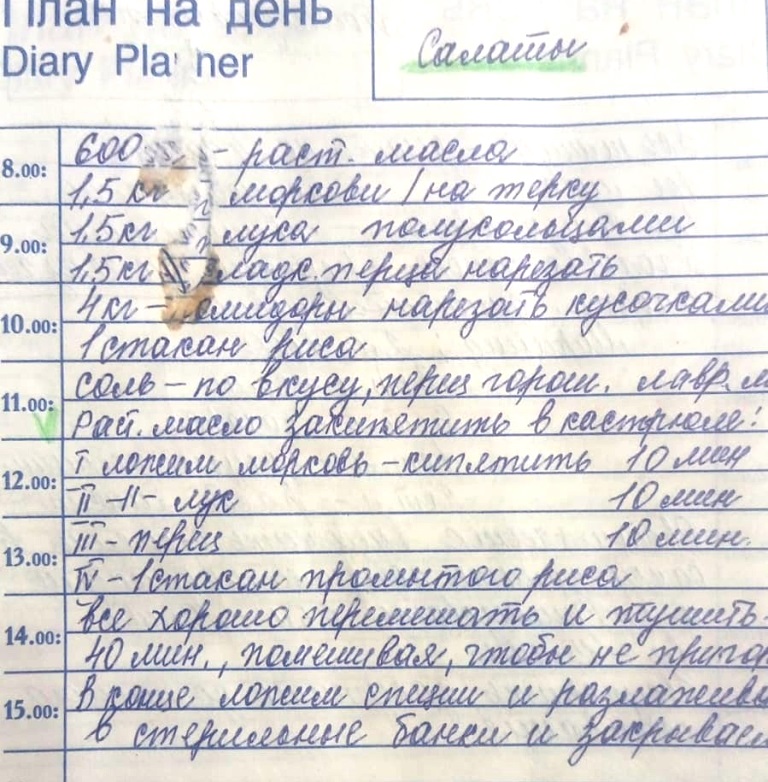 План на день
Diary Planner
Салаты
8.00: 600 - раст. масла
1,5 кг моркови / на терку
9.00: 1,5кг лука полукольцами
1,5кг сладк. перца нарезать
10.00: 4кг - помидоры нарезать кусочками
1 стакан риса
11.00: соль - по вкусу, перец горош. лавр. л
Раст. масло закипятить в кастрюле:
12.00: I ложим морковь - кипятить 10 мин
II -II- лук 10 мин
13.00: III - перец 10 мин.
IV - 1 стакан промытого риса
14.00: все хорошо перемешать и тушить
40 мин., помешивая, чтобы не пригор
15.00: В конце ложим специи и разлажива
в стерильные банки и закрываем